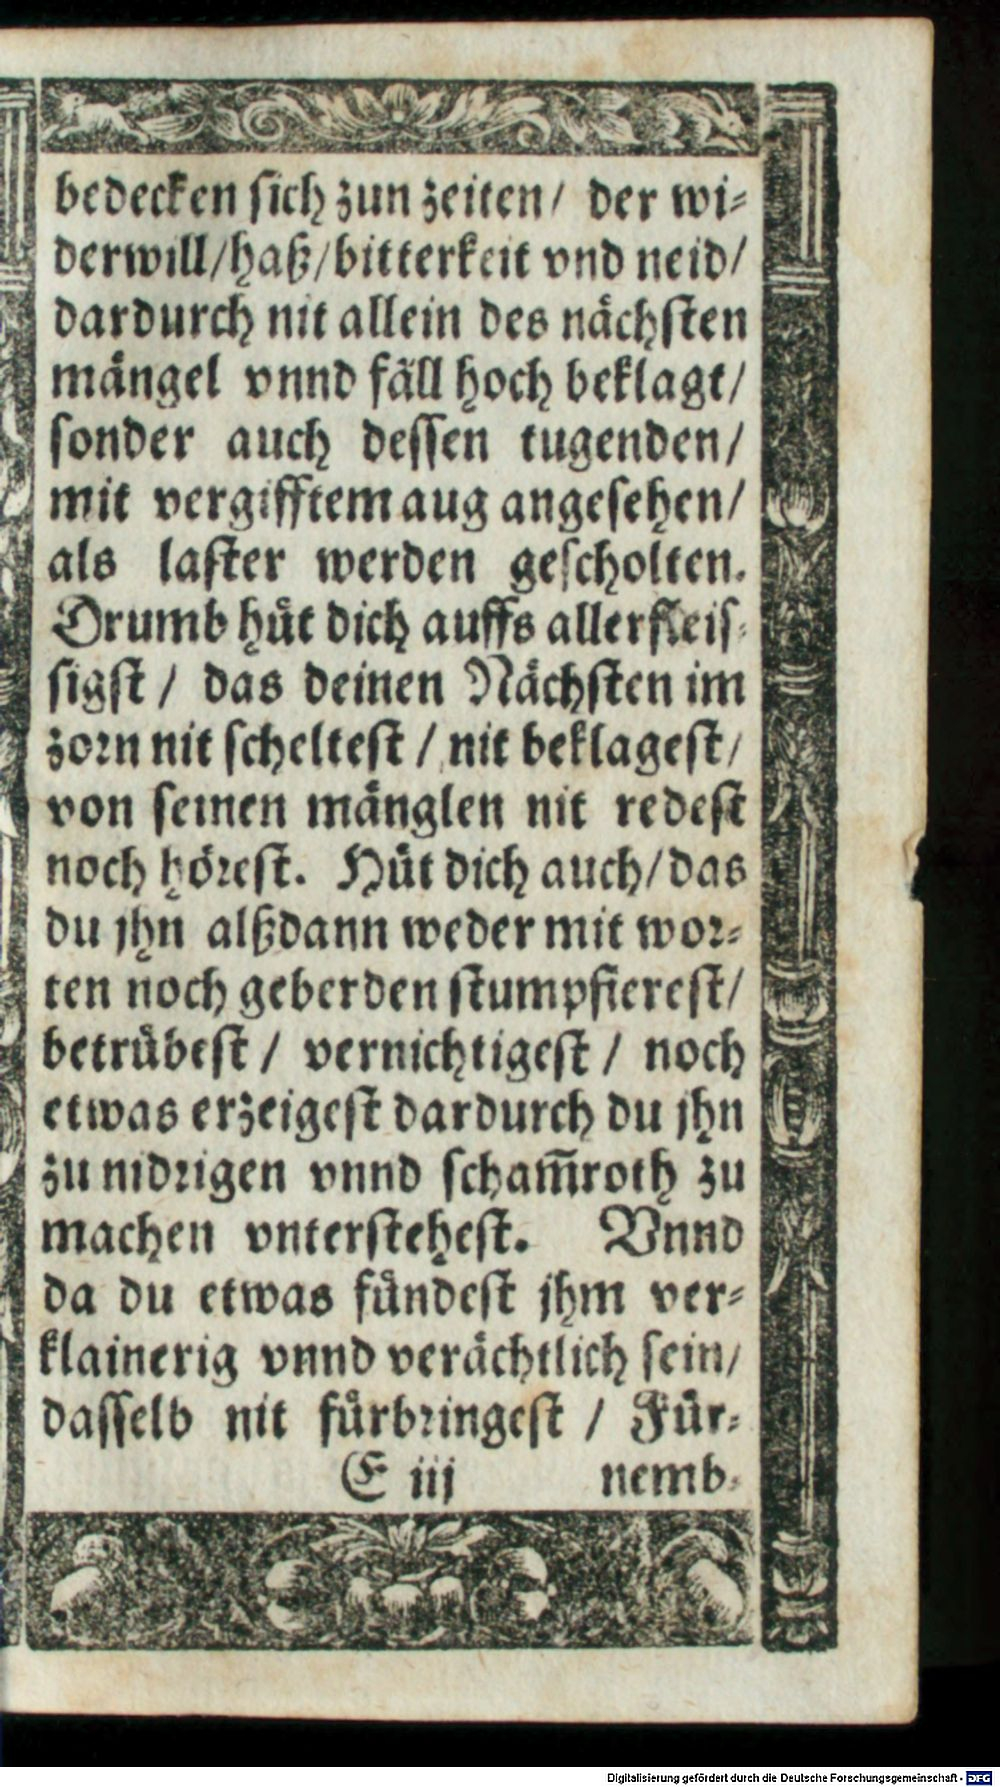 bedecken sich zun zeiten / der wi⸗
derwill/haß/bitterkeit vnd neid/
dardurch nit allein des nächsten
mängel vnnd fäll hoch beklagt/
sonder auch dessen tugenden/
mit vergifftem aug angesehen/
als laster werden gescholten.
Drumb hüt dich auffs allerfleis⸗
sigst / das deinen Nächsten im
zorn nit scheltest / nit beklagest/
von seinen mänglen nit redest
noch hörest. Hüt dich auch/das
du jhn alßdann weder mit wor⸗
ten noch geberden stumpfierest/
betrübest / vernichtigest / noch
etwas erzeigest dardurch du jhn
zu nidrigen vnnd scham̃roth zu
machen vnterstehest. Vnnd
da du etwas fündest jhm ver⸗
klainerig vnnd verächtlich sein/
dasselb nit fürbringest / Für⸗
E iij nemb⸗
Digitalisierung gefördert durch die Deutsche Forschungsgemeinschaft - DFG